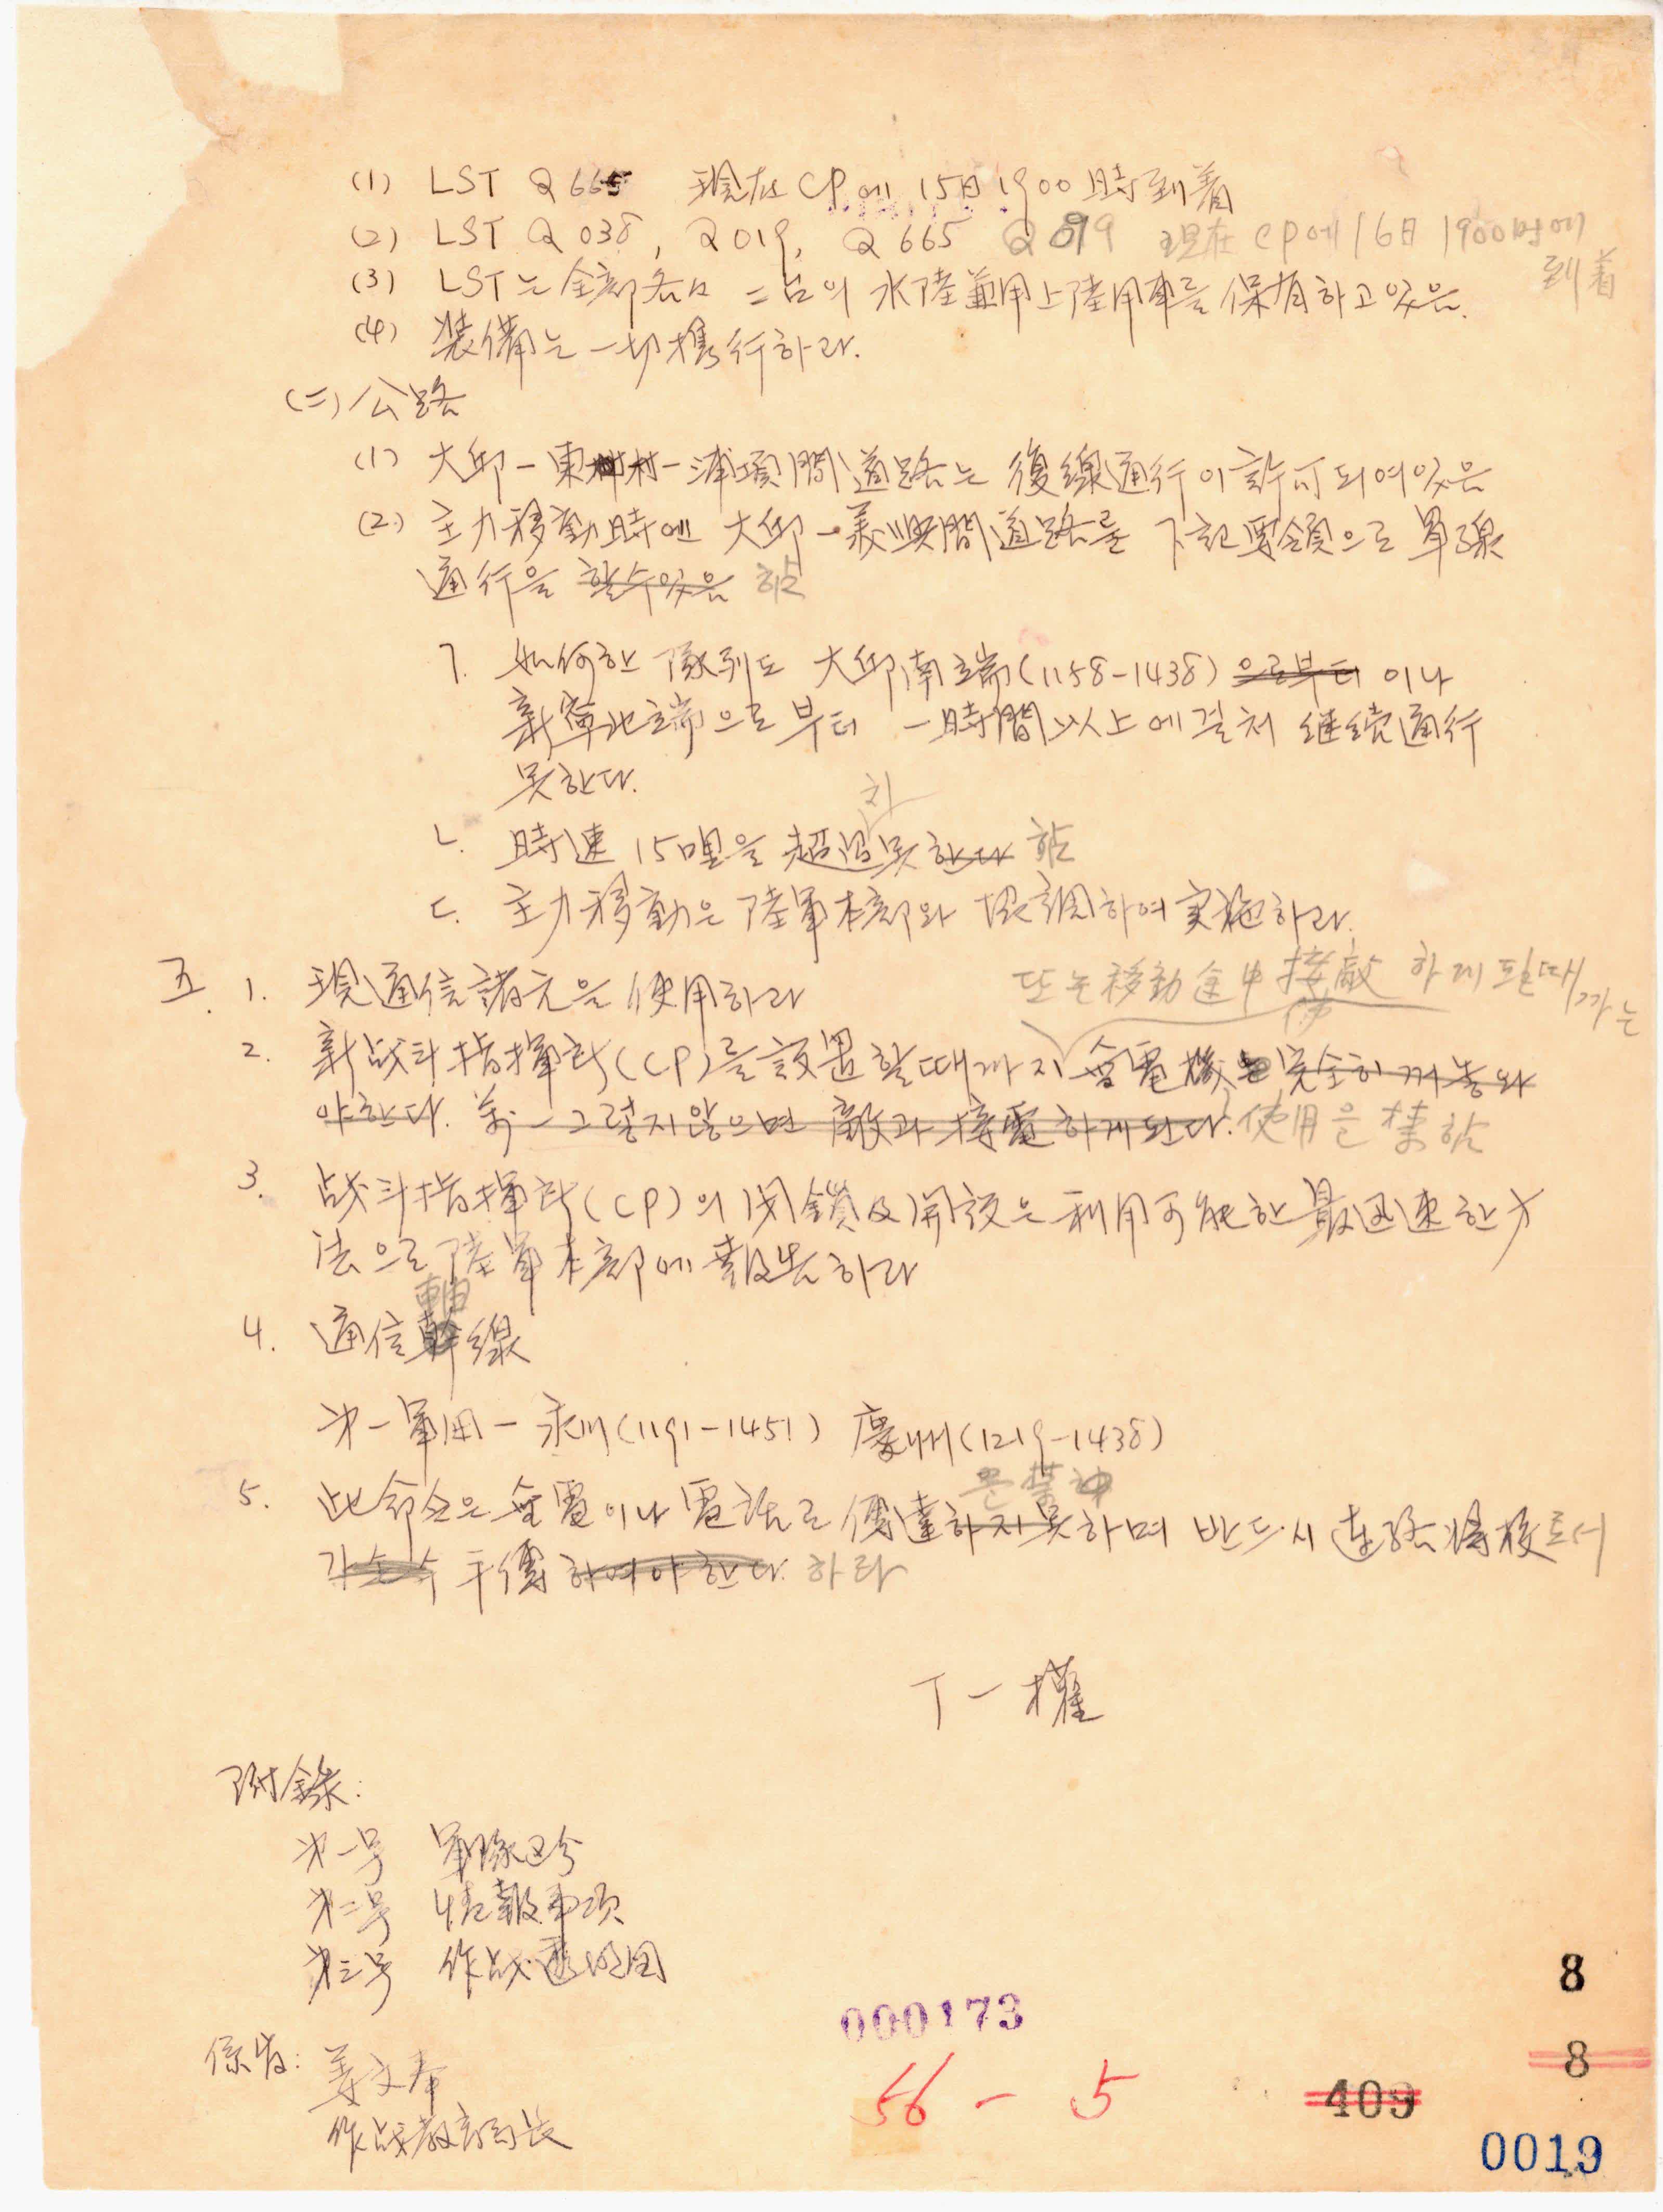 (1) LST Q 665 現在 CP에 15日 1900時到着
(2) LST Q 038, Q 019, Q 665 Q 099 現在 CP에 16日 1900時에
到着
(3) LST는 全部各々 二台의 水陸兼用上陸用車를 保有하고 있음.
(4) 装備는 一切携行하라.
(二) 公路
(1) 大邱 - 東村 - 浦項間道路는 復線通行이 許可되여있음
(2) 主力移動時에 大邱 - 義興間道路를 下記要領으로 單線
通行을 할수있음 함
ㄱ. 如何한 隊列도 大邱南端(1158-1438) 으로부터 이나
新寧北端으로부터 一時間以上에걸처 継続通行
못한다.
치
ㄴ. 時速 15哩을 超過못한다 함
ㄷ. 主力移動은 陸軍本部와 協調하여 実施하라.
五. 1. 現通信諸元은 使用하라
또는 移動途中 接敵 하게 될때까는
2. 新战斗指揮所(CP)를 設置할때까지 無電機는 完全히 꺼놓와
야한다. 萬一 그렇지않으면 敵과 接電하게된다. 使用을 禁함
3. 战斗指揮所(CP)의 閉鎖及開設은 利用可能한 最迅速한 方
法으로 陸軍本部에 報告하라
軸
4. 通信幹線
第一軍団 - 永川(1191-1451) 慶州(1219-1438)
을 禁하
5. 此命令은 無電이나 電話로 傳達하지못하며 반드시 連絡將校로서
手傳하여야한다. 하라
丁一權
附錄:
第一号 軍隊区分
第二号 情報事項
第三号 作战透明図
係官: 姜文奉
作战敎育局長
000173
56 - 5
8
8
409
0019